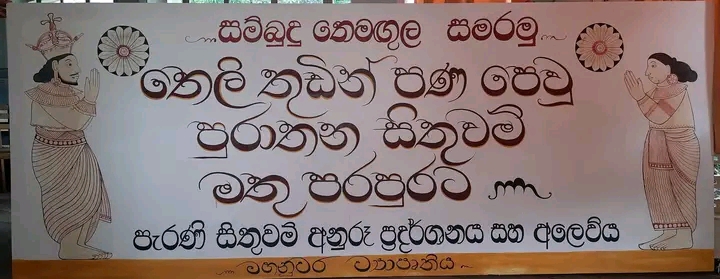 සම්බුදු තෙමඟුල සමරමු
තෙලි තුඩින් පණ පෙවූ
පුරාතන සිතුවම්
මතු පරපුරට
පැරණි සිතුවම් අනුරූ ප්‍රදර්ශනය සහ අලෙවිය
මහනුවර ව්‍යාපෘතිය